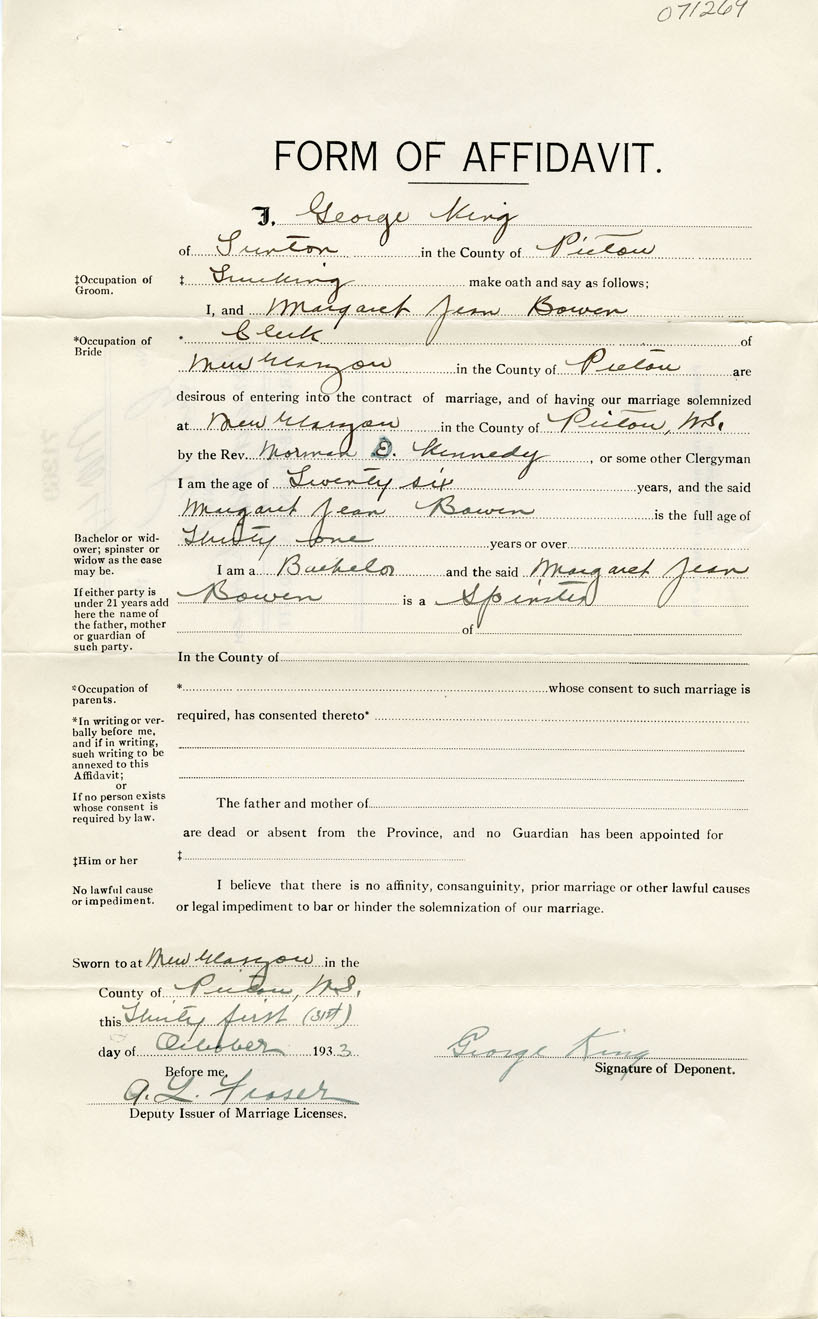 071269
FORM OF AFFIDAVIT.
I, George King
of in the County of Pictou
‡Occupation of Groom. ‡ Trucking make oath and say as follows;
I, and Margaret Jean Bowen
*Occupation of Bride * Clerk of
New Glasgow in the County of Pictou are
desirous of entering into the contract of marriage, and of having our marriage solemnized
at New Glasgow in the County of Pictou, N.S.
by the Rev. Norman D. Kennedy, or some other Clergyman
I am the age of Twenty six years, and the said
Margaret Jean Bowen is the full age of
Thirty one years or over
Bachelor or widower; spinster or widow as the case may be.
I am a Bachelor and the said Margaret Jean
Bowen is a Spinster
If either party is under 21 years add here the name of the father, mother or guardian of such party.
of
In the County of
*Occupation of parents. * whose consent to such marriage is
required, has consented thereto*
*In writing or verbally before me, and if in writing, such writing to be annexed to this Affidavit;
or
If no person exists whose consent is required by law.
The father and mother of
are dead or absent from the Province, and no Guardian has been appointed for
‡Him or her ‡
No lawful cause or impediment.
I believe that there is no affinity, consanguinity, prior marriage or other lawful causes
or legal impediment to bar or hinder the solemnization of our marriage.
Sworn to at New Glasgow in the
County of Pictou, N.S.
this Thirty first (31st)
day of October 1933
George King
Signature of Deponent.
Before me,
A. L. Fraser
Deputy Issuer of Marriage Licenses.